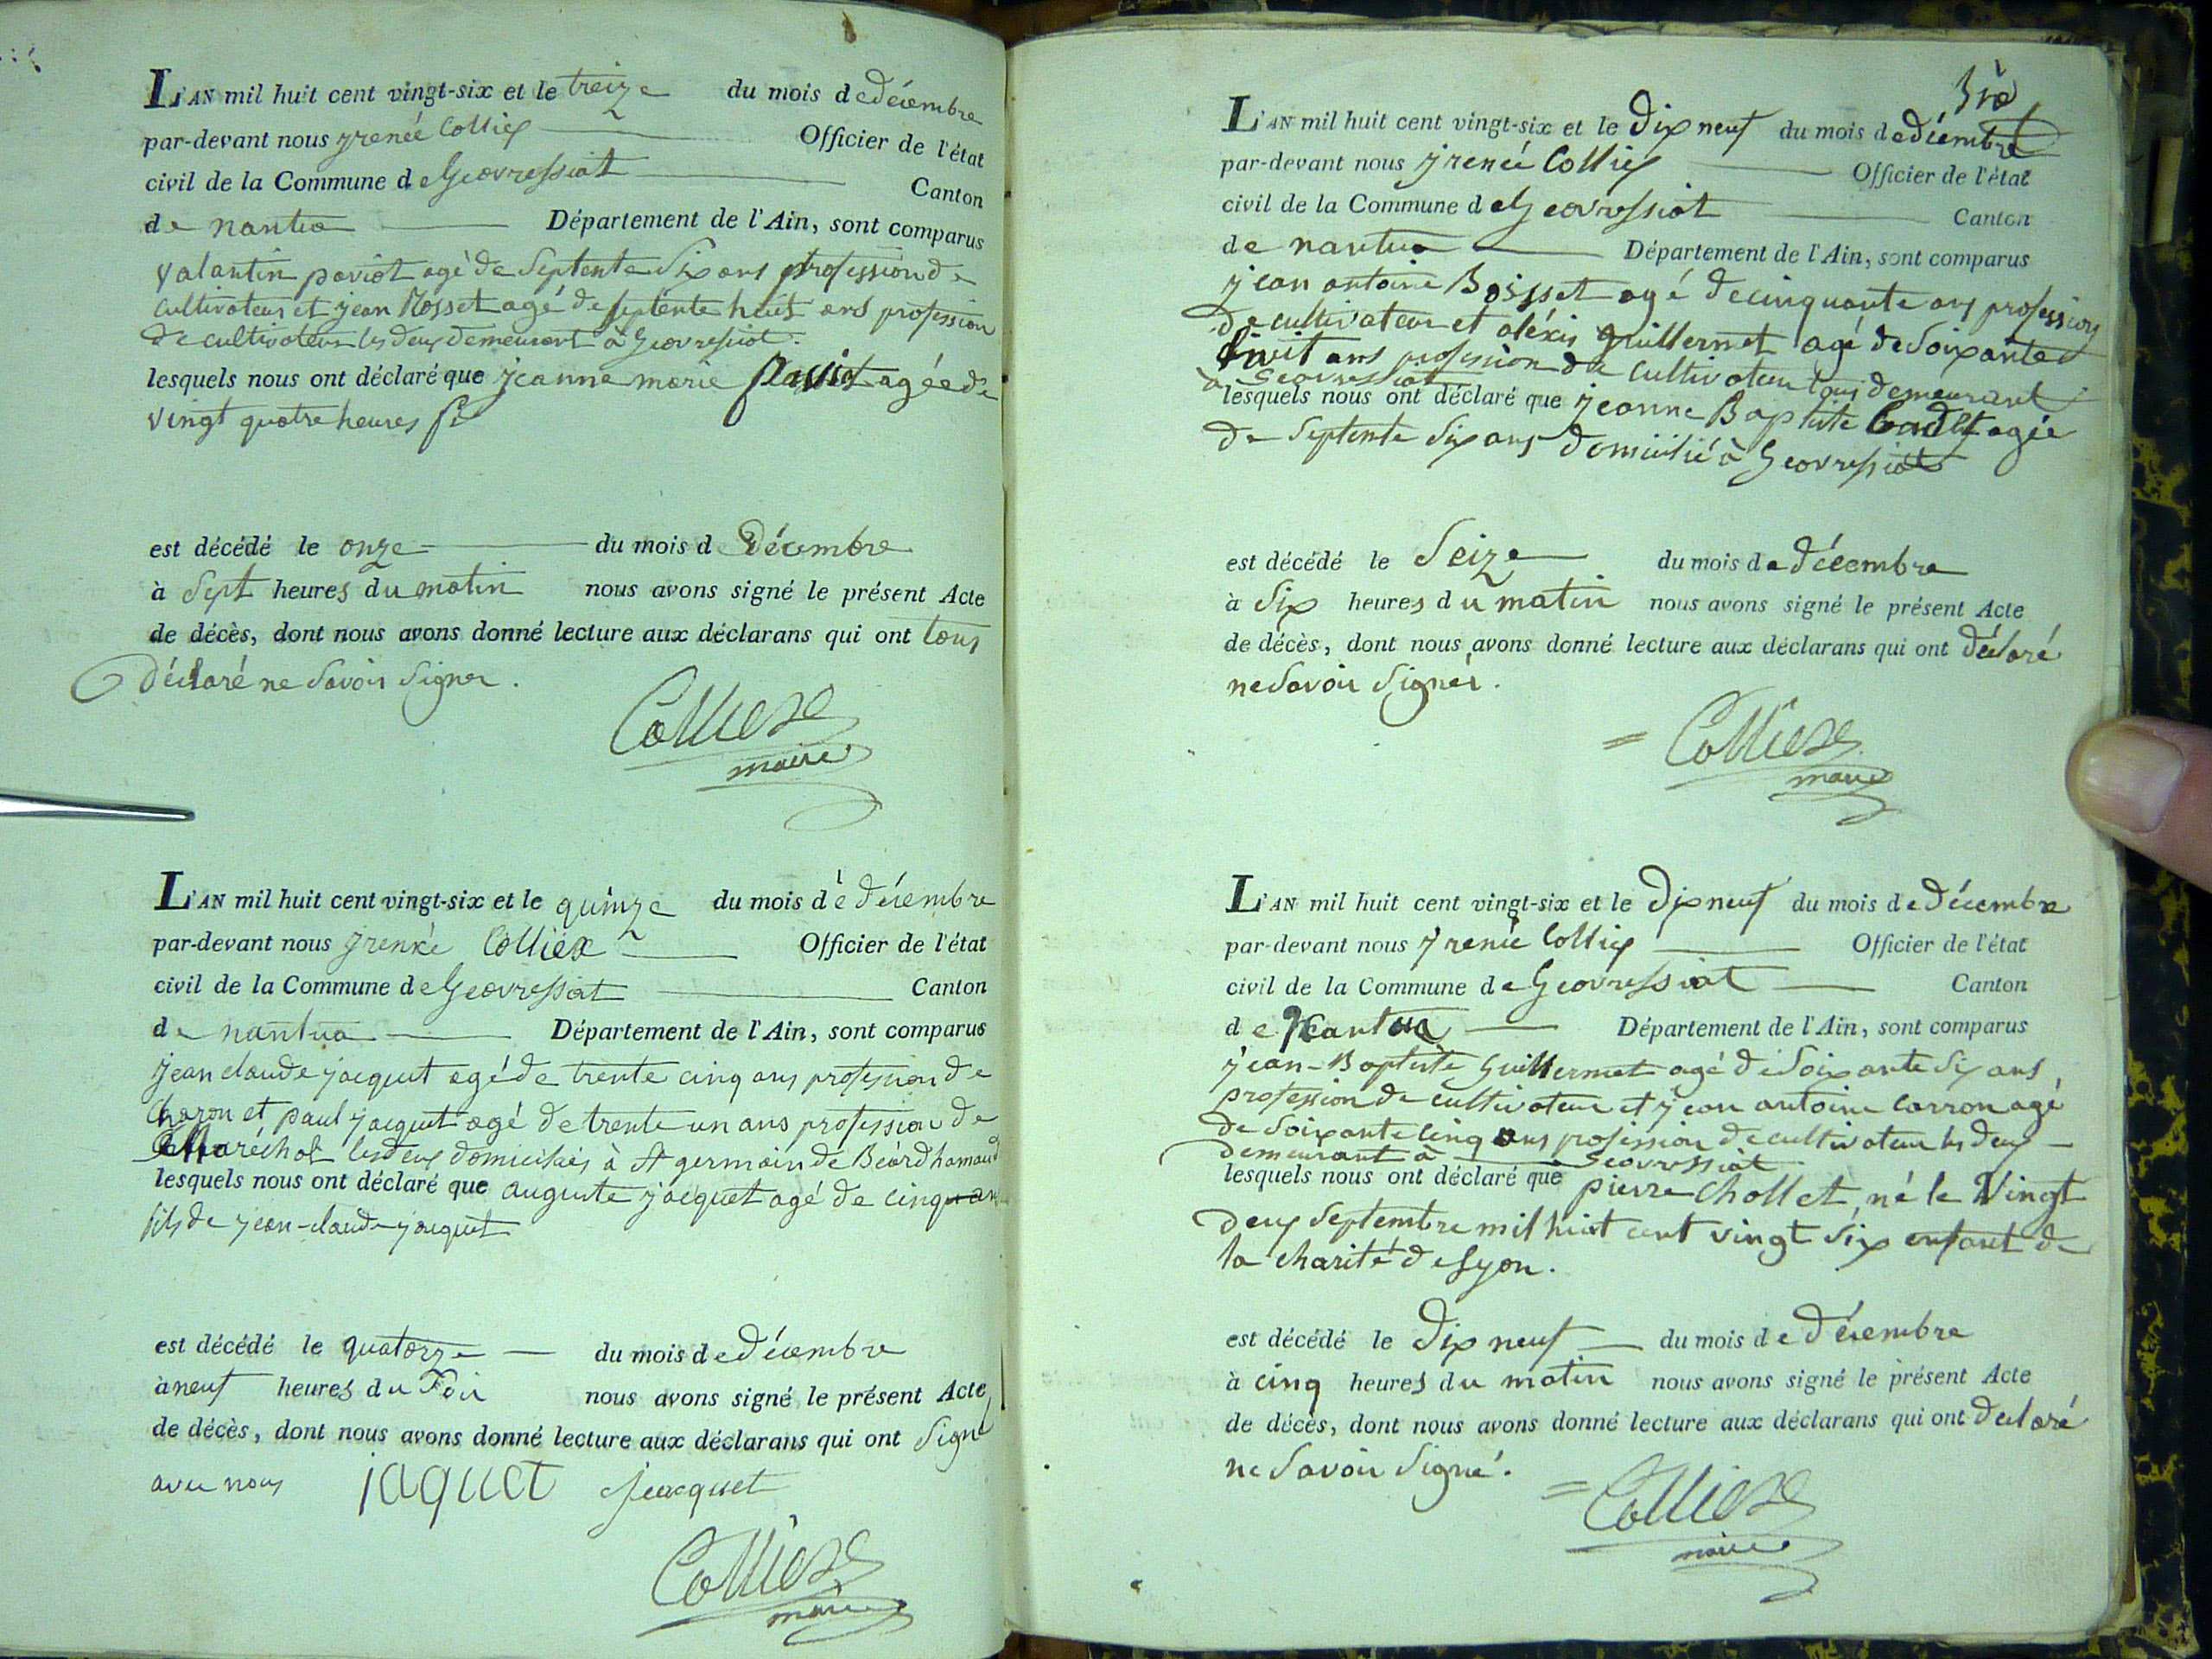 L'AN mil huit cent vingt-six et le treize du mois de décembre
par-devant nous jrenée Colliex Officier de l'état
civil de la Commune de Geovressiat Canton
de nantua Département de l'Ain, sont comparus
valantin paviot agé de septente six ans profession de
cultivateur et jean Mosset agé de septente huit ans profession
de cultivateur les deux demeurant à Geovressiat.
lesquels nous ont déclaré que jeanne marie agée de
vingt quatre heures
est décédé le onze du mois de Décembre
à sept heures du matin nous avons signé le présent Acte
de décès, dont nous avons donné lecture aux déclarans qui ont tous
déclaré ne savoir signer.
Colliex
maire
L'AN mil huit cent vingt-six et le quinze du mois de décembre
par-devant nous jrenée Colliex Officier de l'état
civil de la Commune de Geovressiat Canton
de nantua Département de l'Ain, sont comparus
jean claude jacquet agé de trente cinq ans profession de
charon et paul jacquet agé de trente un ans profession de
Maréchal les deux domiciliés à St germain de Béard hamaud
lesquels nous ont déclaré que auguste jacquet agé de cinq an
fils de jean-claude jacquet
est décédé le quatorze du mois de décembre
à neuf heures du soir nous avons signé le présent Acte
de décès, dont nous avons donné lecture aux déclarans qui ont signé
avec nous jaquet jacquet
Colliex
maire
L'AN mil huit cent vingt-six et le dix neuf du mois de décembre
par-devant nous jrenée Colliex Officier de l'état
civil de la Commune de Geovressiat Canton
de nantua Département de l'Ain, sont comparus
jean antoine Boisset agé de cinquante ans profession
de cultivateur et aléxis guillermet agé de soixante
huit ans profession de cultivateur tous demeurant
à Geovressiat
lesquels nous ont déclaré que jeanne Baptiste agée
de septente six ans domicilié à Geovressiat
est décédé le seize du mois de décembre
à six heures du matin nous avons signé le présent Acte
de décès, dont nous avons donné lecture aux déclarans qui ont déclaré
ne savoir signer.
= Colliex
maire
L'AN mil huit cent vingt-six et le dix neuf du mois de décembre
par-devant nous jrenée Colliex Officier de l'état
civil de la Commune de Geovressiat Canton
de Nantua Département de l'Ain, sont comparus
jean-Baptiste Guillermet agé de soixante six ans
profession de cultivateur et jean antoine carron agé
de soixante cinq ans profession de cultivateur les deux
demeurant à Geovressiat
lesquels nous ont déclaré que pierre Chollet, né le Vingt
deux septembre mil huit cent vingt six enfant de
la charité de Lyon.
est décédé le dix neuf du mois de décembre
à cinq heures du matin nous avons signé le présent Acte
de décès, dont nous avons donné lecture aux déclarans qui ont declaré
ne savoir signé.
= Colliex
maire